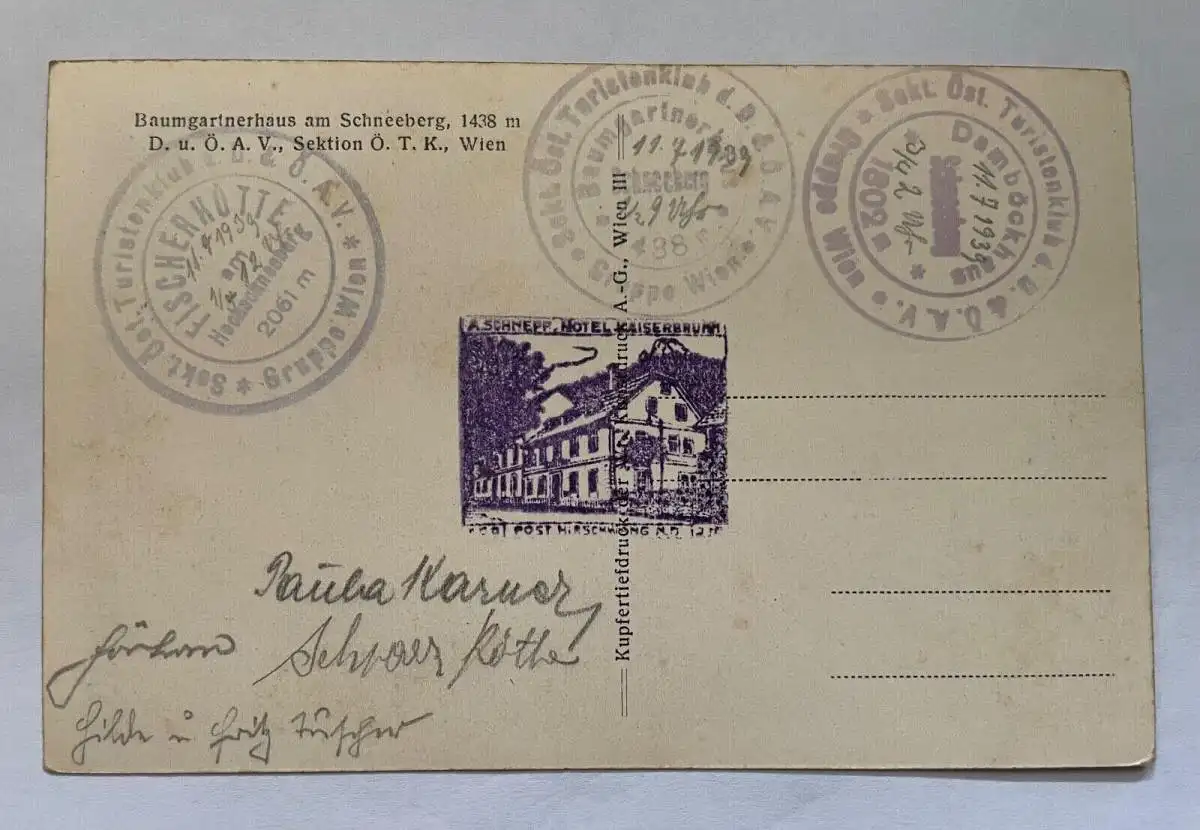 Baumgartnerhaus am Schneeberg, 1438 m
D. u. Ö. A. V., Sektion Ö. T. K., Wien
Sekt. Öst. Turistenklub d. D. & Ö. A. V. * Gruppe Wien *
FISCHERHÜTTE
11.7.1939
am
1/4 12
Hochschneeberg
2061 m
Sekt. Öst. Turistenklub d. D. & Ö. A. V. Gruppe Wien
Baumgartner
11.7.1939
Schneeberg
1/2 9 Uhr
438 m
Sekt. Öst. Turistenklub d. D. & Ö. A. V. * Gruppe Wien *
Damböckhaus
11.7.1939
Schneeberg
3/4 2 Uhr
1802 m
A. SCHNEPP, HOTEL KAISERBRUNN
POST HIRSCHWANG N.D.
Kupfertiefdruck der Kunstdruck A.-G., Wien III
Karner
Schwarz
Hilde u Fritz Tüscher